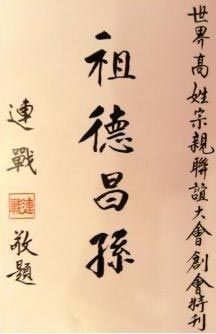 世界高姓宗親聯誼大會創會特刊
祖德昌孫
連戰
連戰
敬題